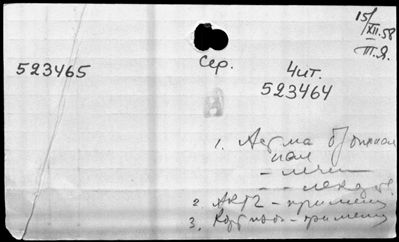 15/XII.58
Т.Я.
523465
Сер.
Чит.
523464
1. Астма бронхиал
ная
- лечен
- - лекарс.
2. АКТГ - примен
3. Кортизон - примен